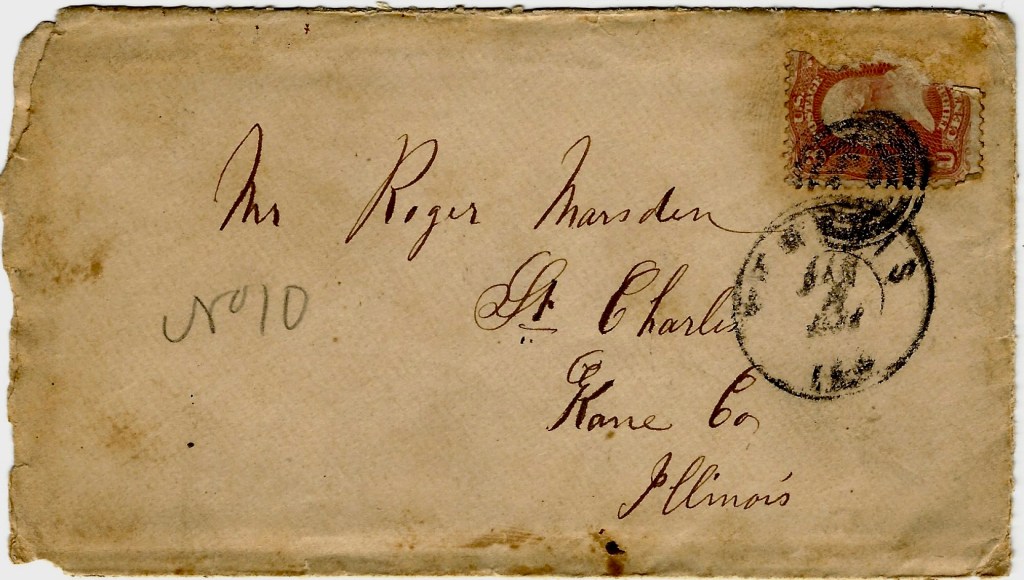 Mr Roger Marsden
St. Charles
No 10
Kane Co
Illinois
JAN